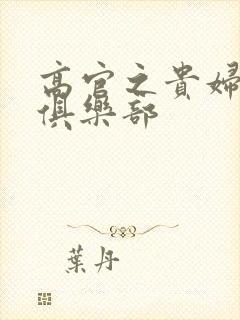 高官之貴婦
俱樂部
葉丹